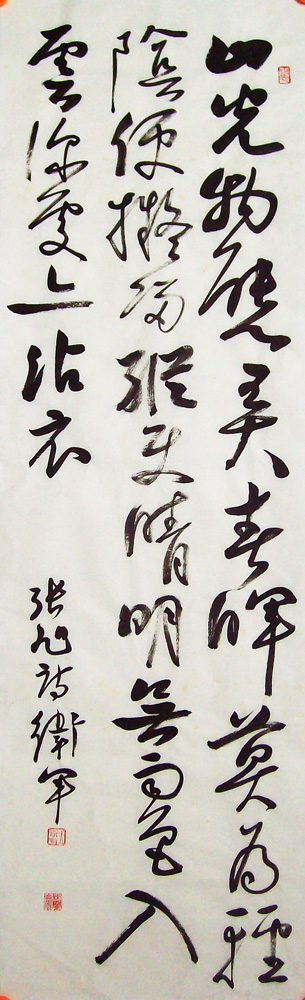 山光物態弄春暉莫為輕
陰便擬歸縱使晴明無雨色入
雲深處亦沾衣
張旭詩衛軍